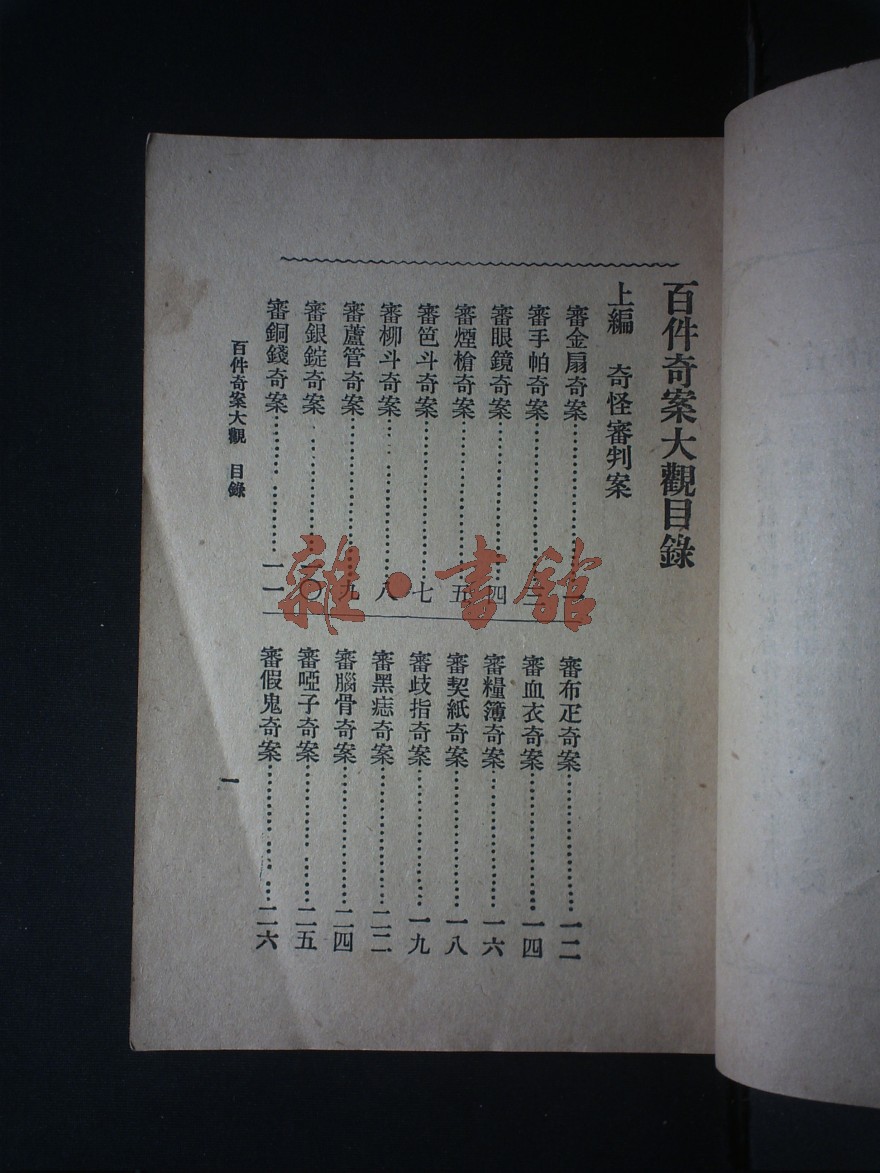 百件奇案大觀目錄
上編　奇怪審判案
審金扇奇案……………一
審手帕奇案……………三
審眼鏡奇案……………四
審煙槍奇案……………五
審笆斗奇案……………七
審柳斗奇案……………八
審蘆管奇案……………九
審銀錠奇案……………一〇
審銅錢奇案……………一一
審布疋奇案……………一二
審血衣奇案……………一四
審糧簿奇案……………一六
審契紙奇案……………一八
審歧指奇案……………一九
審黑痣奇案……………二二
審腦骨奇案……………二四
審啞子奇案……………二五
審假鬼奇案……………二六
百件奇案大觀　目錄
一
雜·書館